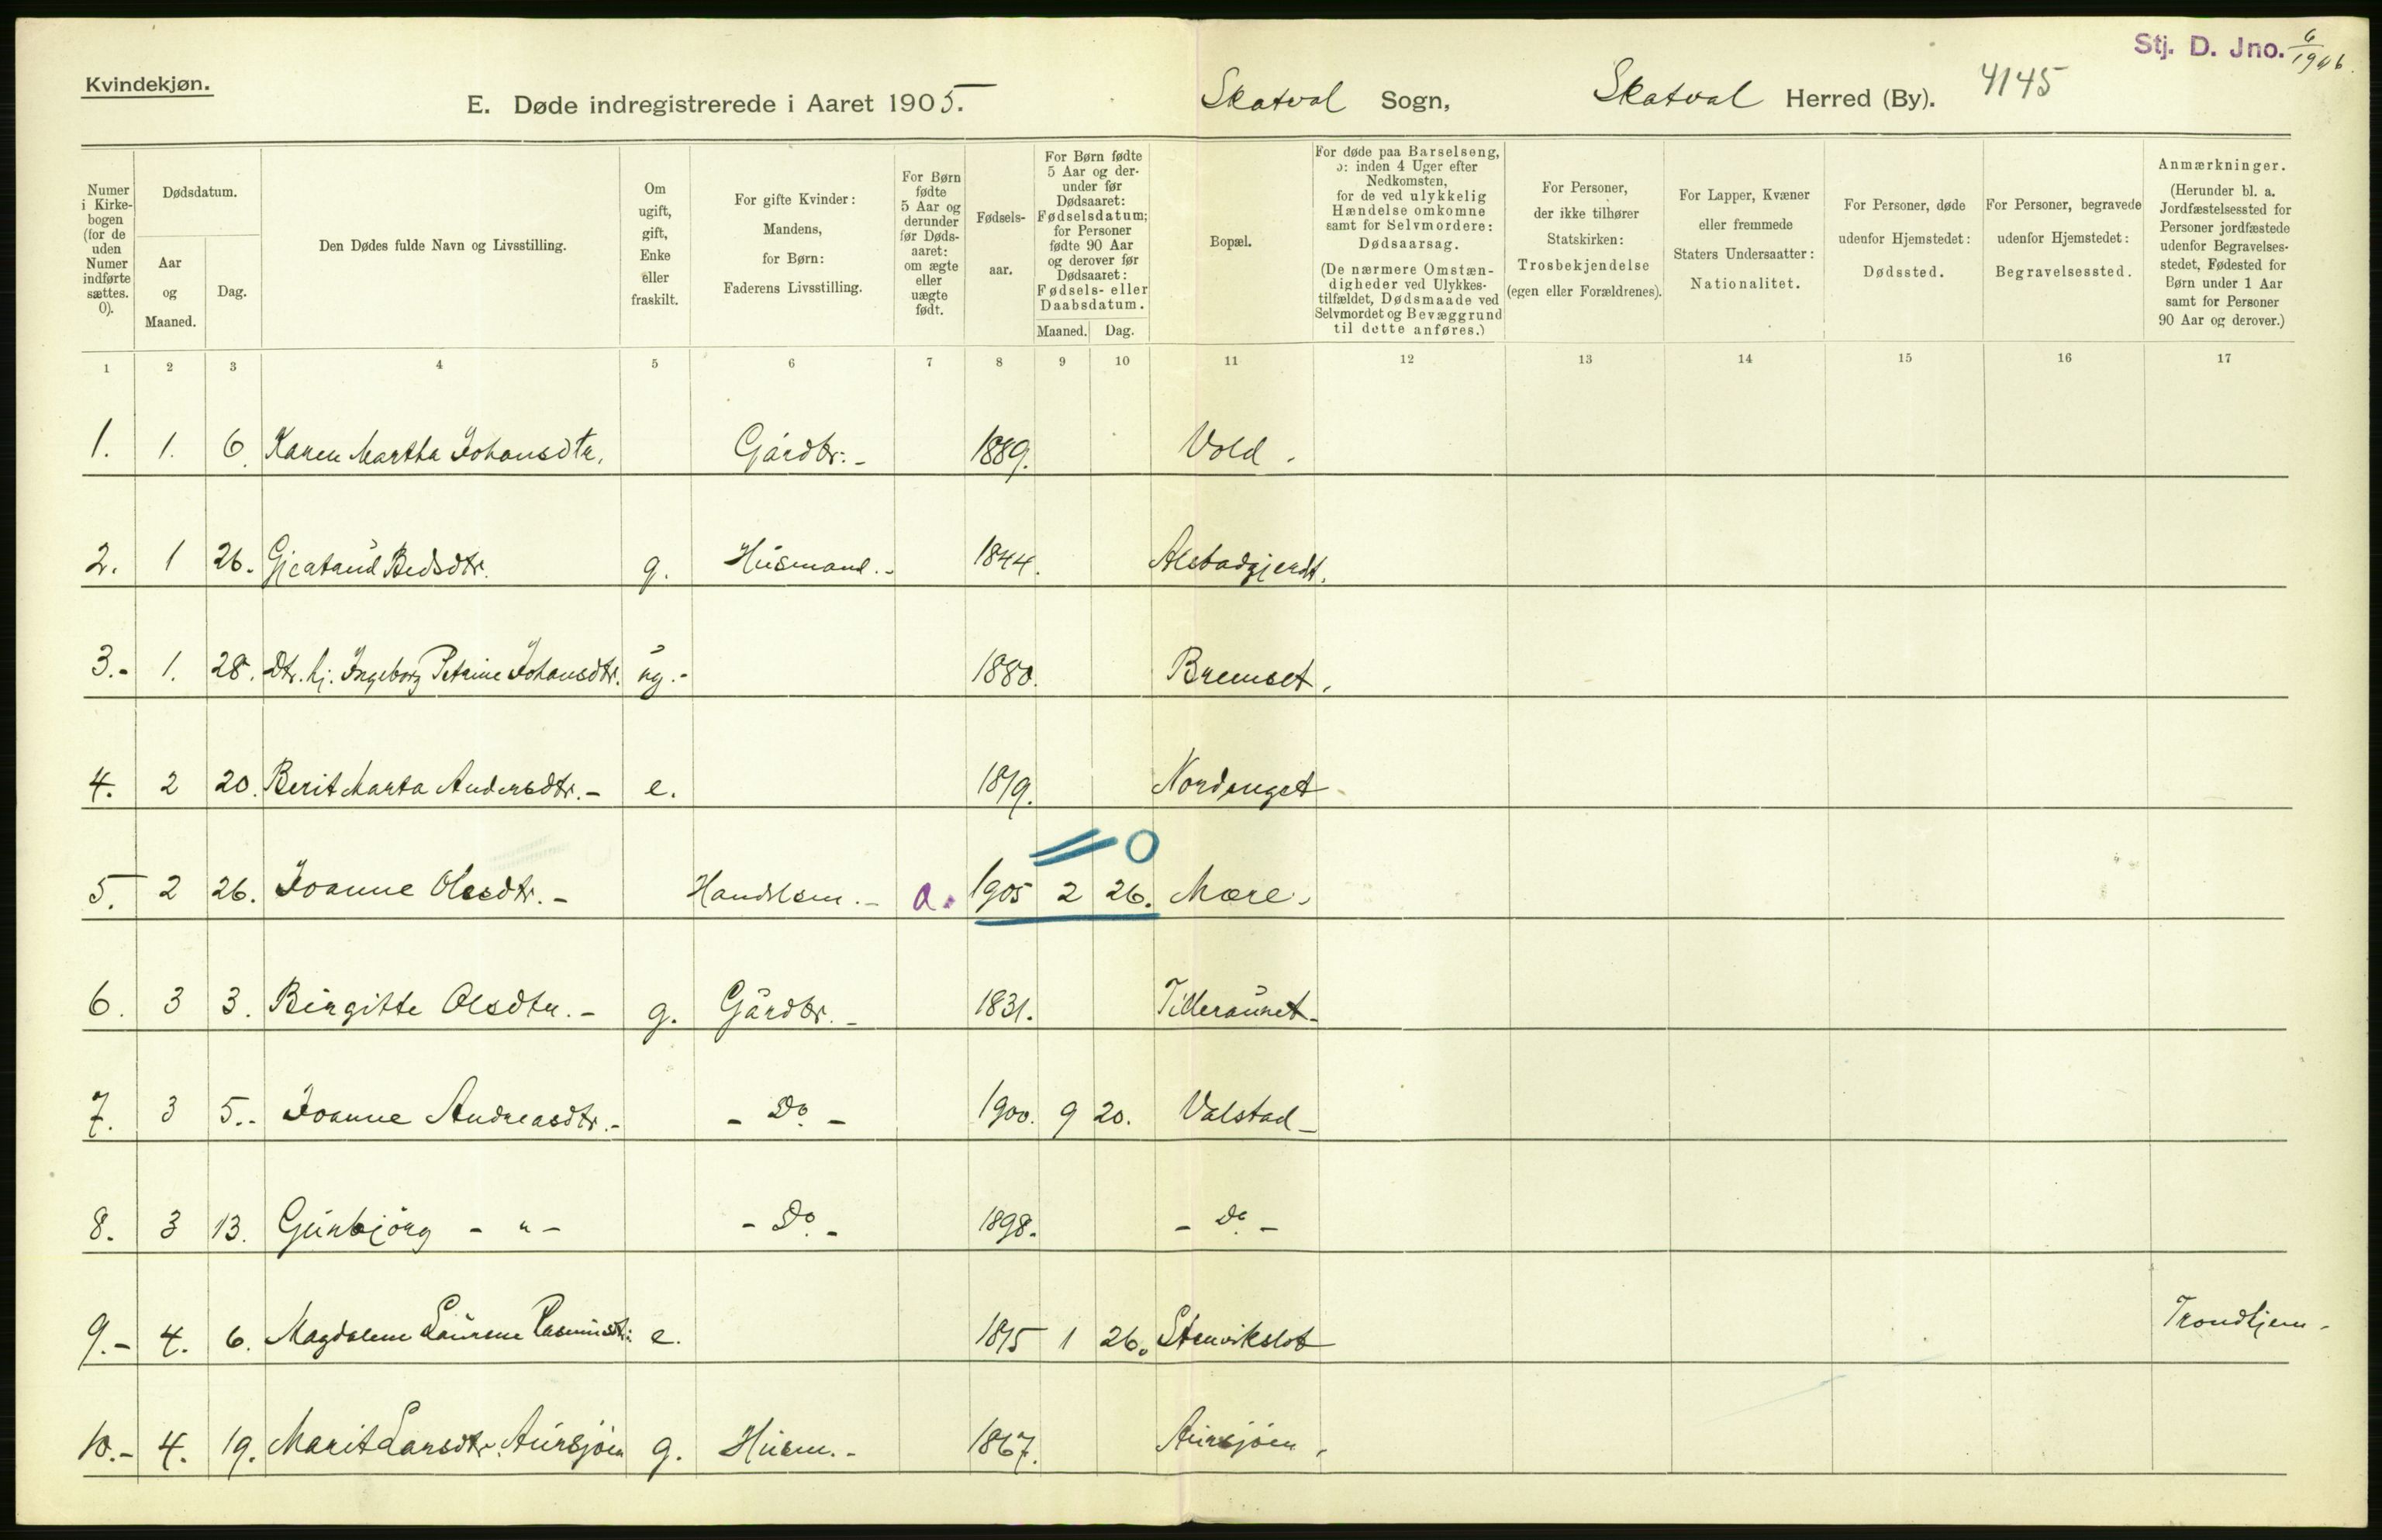 Stj. D. Jno. 6/1906.
Kvindekjøn.
E. Døde indregistrerede i Aaret 1905. Skatval Sogn, Skatval Herred (By). 4145
Numer i Kirke-bogen (for de uden Numer indførte sættes. 0).
Dødsdatum.
Aar og Maaned.
Dag.
Den Dødes fulde Navn og Livsstilling.
Om ugift, gift, Enke eller fraskilt.
For gifte Kvinder: Mandens, for Børn: Faderens Livsstilling.
For Børn fødte 5 Aar og derunder før Døds-aaret: om ægte eller uægte født.
Fødsels-aar.
For Børn fødte 5 Aar og der-under før Dødsaaret: Fødselsdatum; for Personer fødte 90 Aar og derover før Dødsaaret: Fødsels- eller Daabsdatum.
Maaned. Dag.
Bopæl.
For døde paa Barselseng, ɔ: inden 4 Uger efter Nedkomsten, for de ved ulykkelig Hændelse omkomne samt for Selvmordere: Dødsaarsag.
(De nærmere Omstæn-digheder ved Ulykkes-tilfældet, Dødsmaade ved Selvmordet og Bevæggrund til dette anføres.)
For Personer, der ikke tilhører Statskirken: Trosbekjendelse (egen eller Forældrenes).
For Lapper, Kvæner eller fremmede Staters Undersaatter: Nationalitet.
For Personer, døde udenfor Hjemstedet: Dødssted.
For Personer, begravede udenfor Hjemstedet: Begravelsessted.
Anmærkninger.
(Herunder bl. a. Jordfæstelsessted for Personer jordfæstede udenfor Begravelses-stedet, Fødested for Børn under 1 Aar samt for Personer 90 Aar og derover.)
1 2 3 4 5 6 7 8 9 10 11 12 13 14 15 16 17
1. 1. 6. Karen Martha Johansdtr. Gårdbr.- 1889. Vold.
2. 1 26. g. Husmand.- 1844. Alstadgjerdt.
3.- 1. 28. Dtr. hj. Ingeborg Petrine Johansdtr. ug.- 1880. Bremset.
4. 2 20. Berit Marta Andersdtr.- e. 1819. Nordenget
0
5. 2 26. Joanne Olesdtr.- Handelsm.- a. 1905 2 26. Mære.
6. 3 3. Birgitte Olsdtr.- g. Gårdbr.- 1831. Tilleraunet-
7. 3 5.- Joanne Andreasdtr.- - Do - 1900. 9 20. Valstad-
8. 3 13. Gunbjörg - " - - Do.- 1898. - Do. -
9.- 4. 6. Magdalene Laurene Rasmusdtr: e. 1815 1 26. Stenvikslot Trondhjem.
10.- 4. 19. Marit Larsdtr. Aursjöen g. Husm.- 1867. Aursjöen.